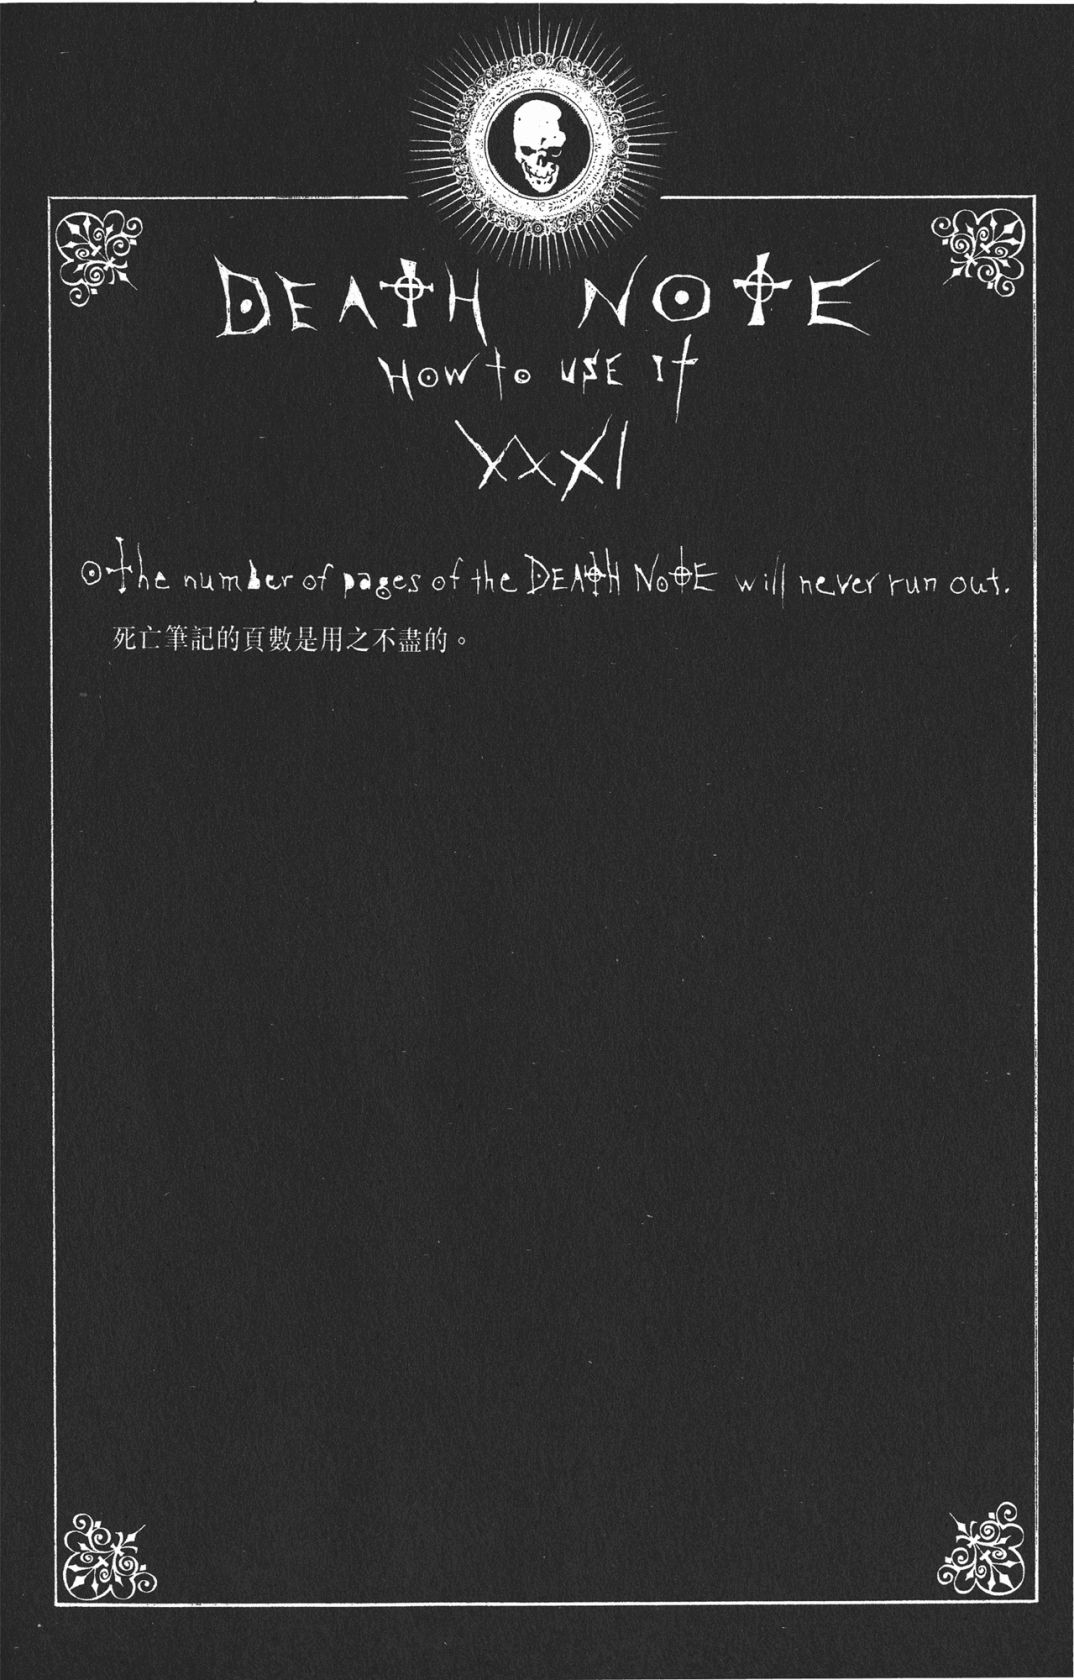 DEATH NOTE
HOW to USE It
XXXI
⊙The number of pages of the DEATH NOTE will never run out.
死亡筆記的頁數是用之不盡的。